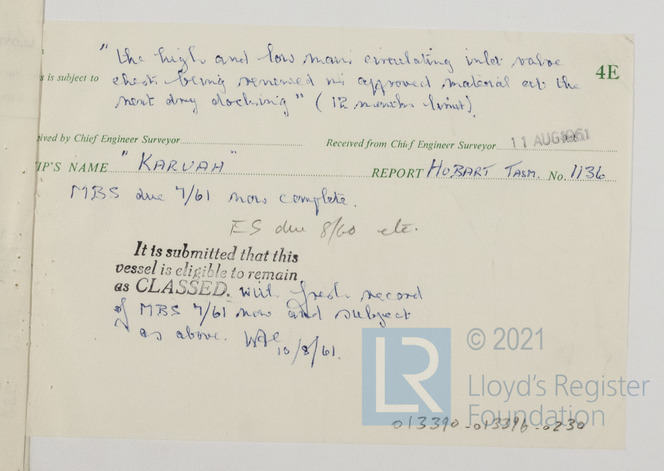 "the high and low main circulating inlet valve
s is subject to chests being renewed in approved material at the
4E
next dry docking" (12 months limit).
ived by Chief Engineer Surveyor
Received from Chief Engineer Surveyor 11 AUG 1961
IP'S NAME "KARUAH" REPORT HOBART TASM. No. 1136
MBS due 7/61 now complete.
ES due 8/60 etc.
It is submitted that this
vessel is eligible to remain
as CLASSED. with fresh record
of MBS 7/61 now and subject
as above.
10/8/61.
LR
© 2021
Lloyd's Register
Foundation
013390-013396-0230